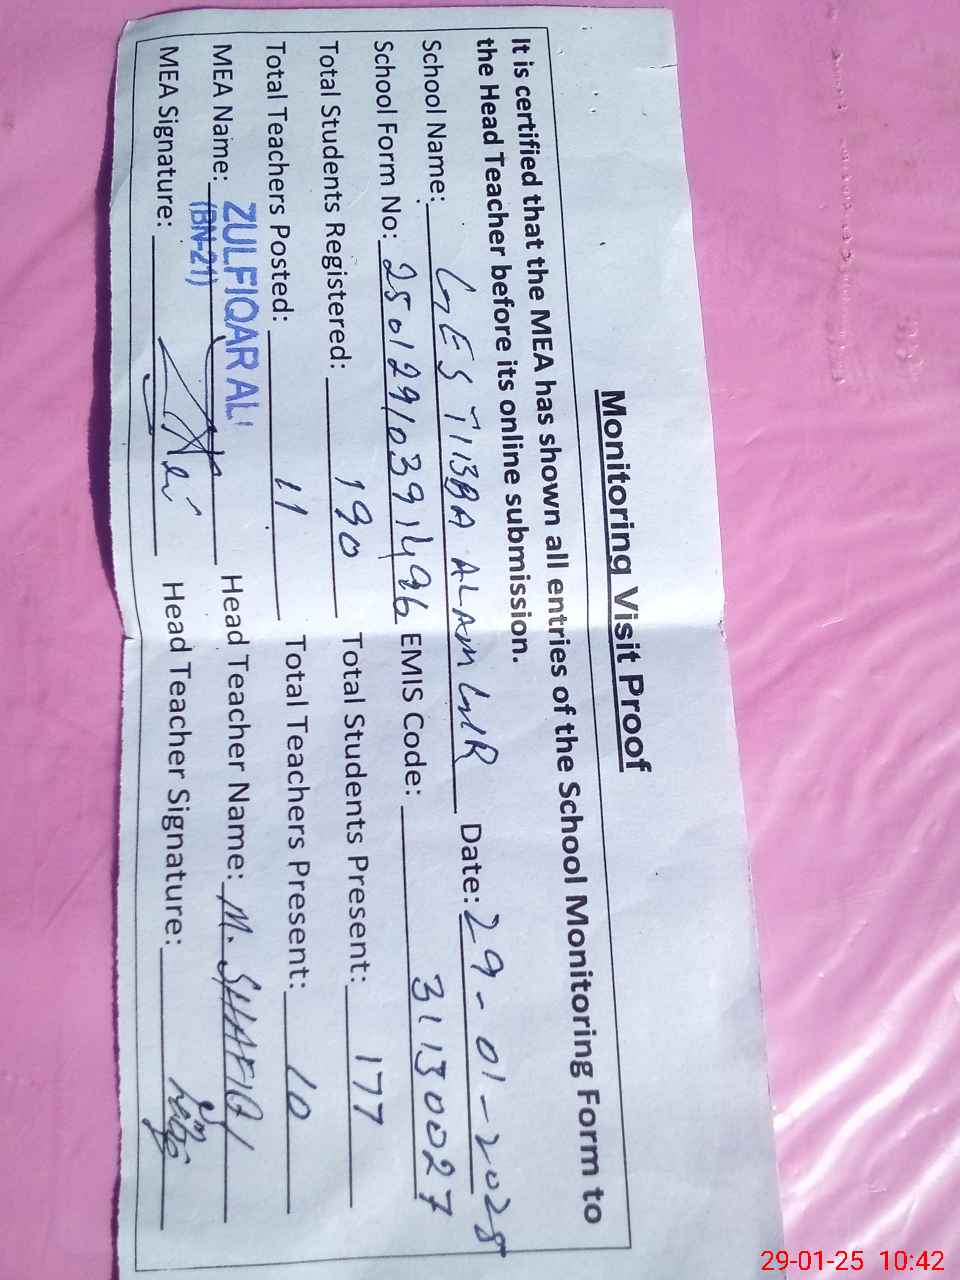 Monitoring Visit Proof
It is certified that the MEA has shown all entries of the School Monitoring Form to
the Head Teacher before its online submission.
School Name: GES 7113BA ALAM GIR Date: 29-01-2025
School Form No: 25012910391496 EMIS Code: 31130027
Total Students Registered: 190 Total Students Present: 177
Total Teachers Posted: 11 Total Teachers Present: 10
MEA Name: ZULFIQAR ALI (BN-21) Head Teacher Name: M. SHAFIQ
MEA Signature: Head Teacher Signature:
29-01-25 10:42